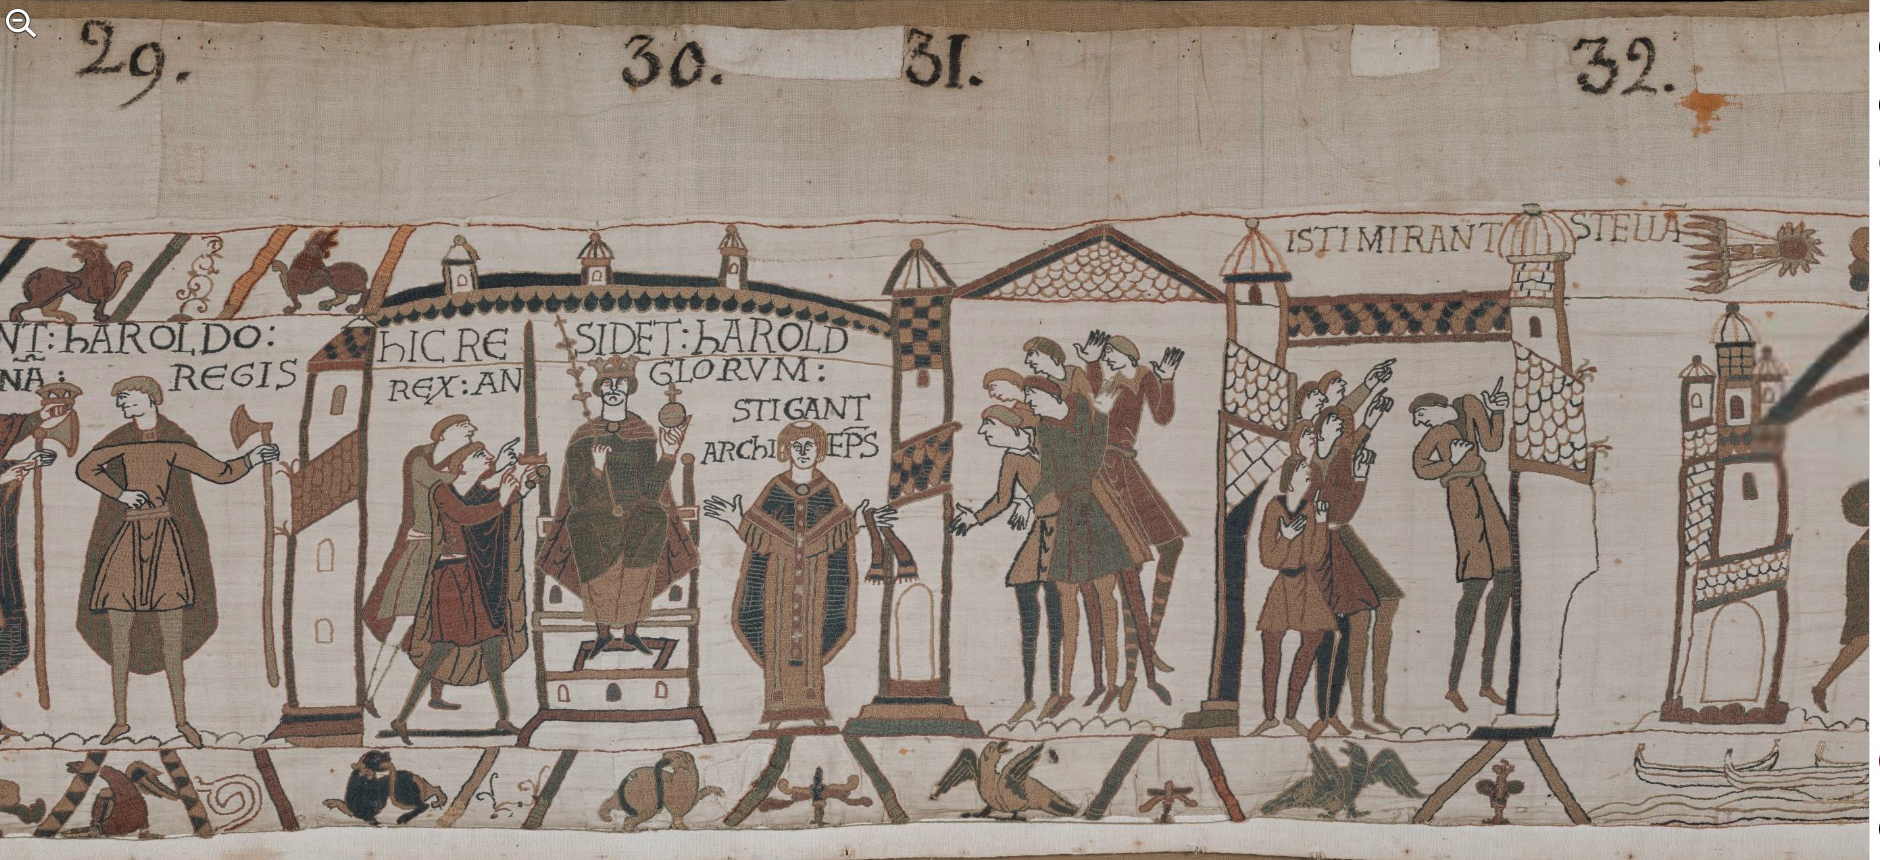 29.
30.
31.
32.
NT: hAROLDO:
NA:
REGIS
hIC RE SIDET: hAROLD
REX: AN GLORVM:
STIGANT
ARChI EP̄S
ISTI MIRANT STELLĀ